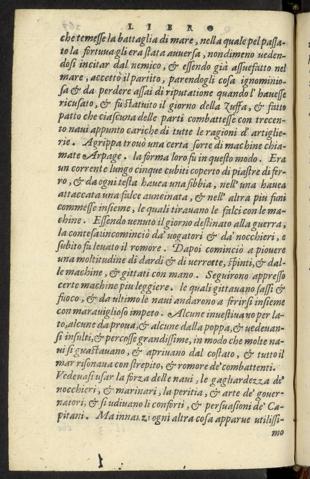 LIBRO
che temesse la battaglia di mare, nella quale pel passa-
to la fortuna gli era stata auuersa, nondimeno veden-
dosi incitar dal nemico, & essendo già assuefatto nel
mare, accettò il partito, parendogli cosa ignominio-
sa & da perdere assai di riputatione quando l'hauesse
ricusato, & fu statuito il giorno della Zuffa, & fatto
patto che ciascuna delle parti combattesse con trecen-
to naui appunto cariche di tutte le ragioni d'artiglie-
rie. Agrippa trouò una certa sorte di machine chia-
mate Arpage. la forma loro fu in questo modo. Era
un corrente lungo cinque cubiti coperto di piastre di fer-
ro, & da ogni testa hauea una fibbia, nell'una hauea
attaccata una falce auncinata, & nell'altra piu funi
commesse insieme, le quali tirauano le falci con le ma-
chine. Essendo venuto il giorno destinato alla guerra,
la contesa incominciò da' uogatori & da' nocchieri, &
subito fu leuato il romore. Dapoi cominciò a piouere
una moltitudine di dardi & di verrette, spinti, & dal-
le machine, & gittati con mano. Seguirono appresso
certe machine piu leggiere. le quali gittauano sassi &
fuoco, & da ultimo le naui andarono a ferirsi insieme
con marauiglioso impeto. Alcune inuestiuano per la-
to, alcune da proua, & alcune dalla poppa, & vedeuan-
si insulti, & percosse grandissime, in modo che molte na-
ui si guastauano, & apriuano dal costato, & tutto il
mar risonaua con strepito, & romore de' combattenti.
Vedeuasi usar la forza delle naui, le gagliardezza de'
nocchieri, & marinari, la peritia, & arte de' gouer-
natori, & si udiuano li conforti, & persuasioni de' Ca-
pitani. Ma innanzi ogni altra cosa apparue utilissi-
mo